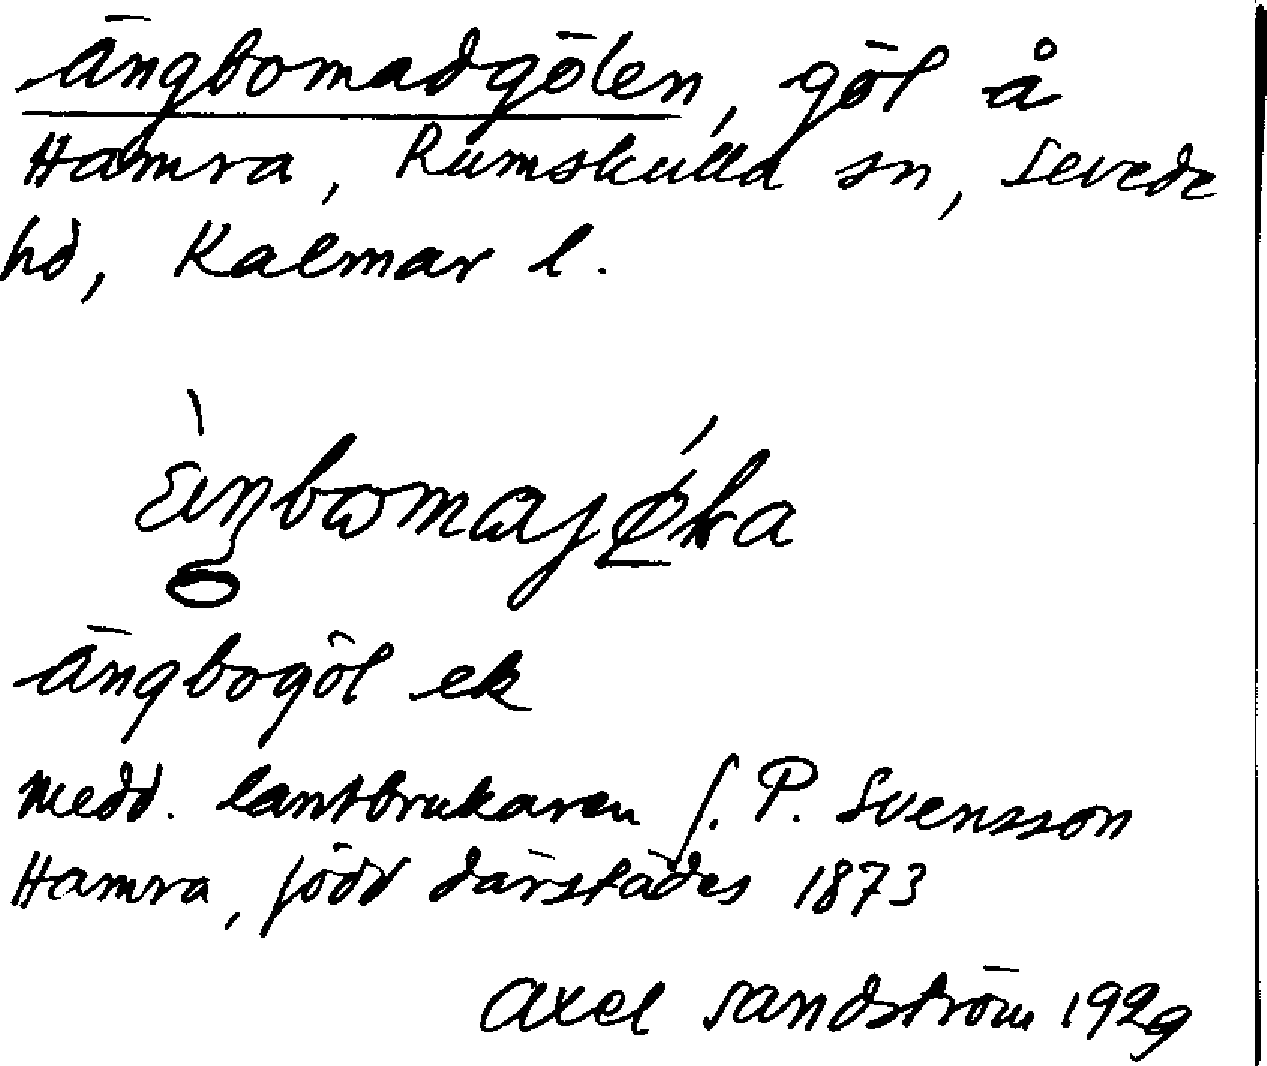 Ängbomadgölen, göl å
Hamra, Rumskulla sn, Sevede
hd, Kalmar l.
Ängbogöl ek
Medd. lantbrukaren J. P. Svensson
Hamra, född därstädes 1873
Axel Sandström 1929